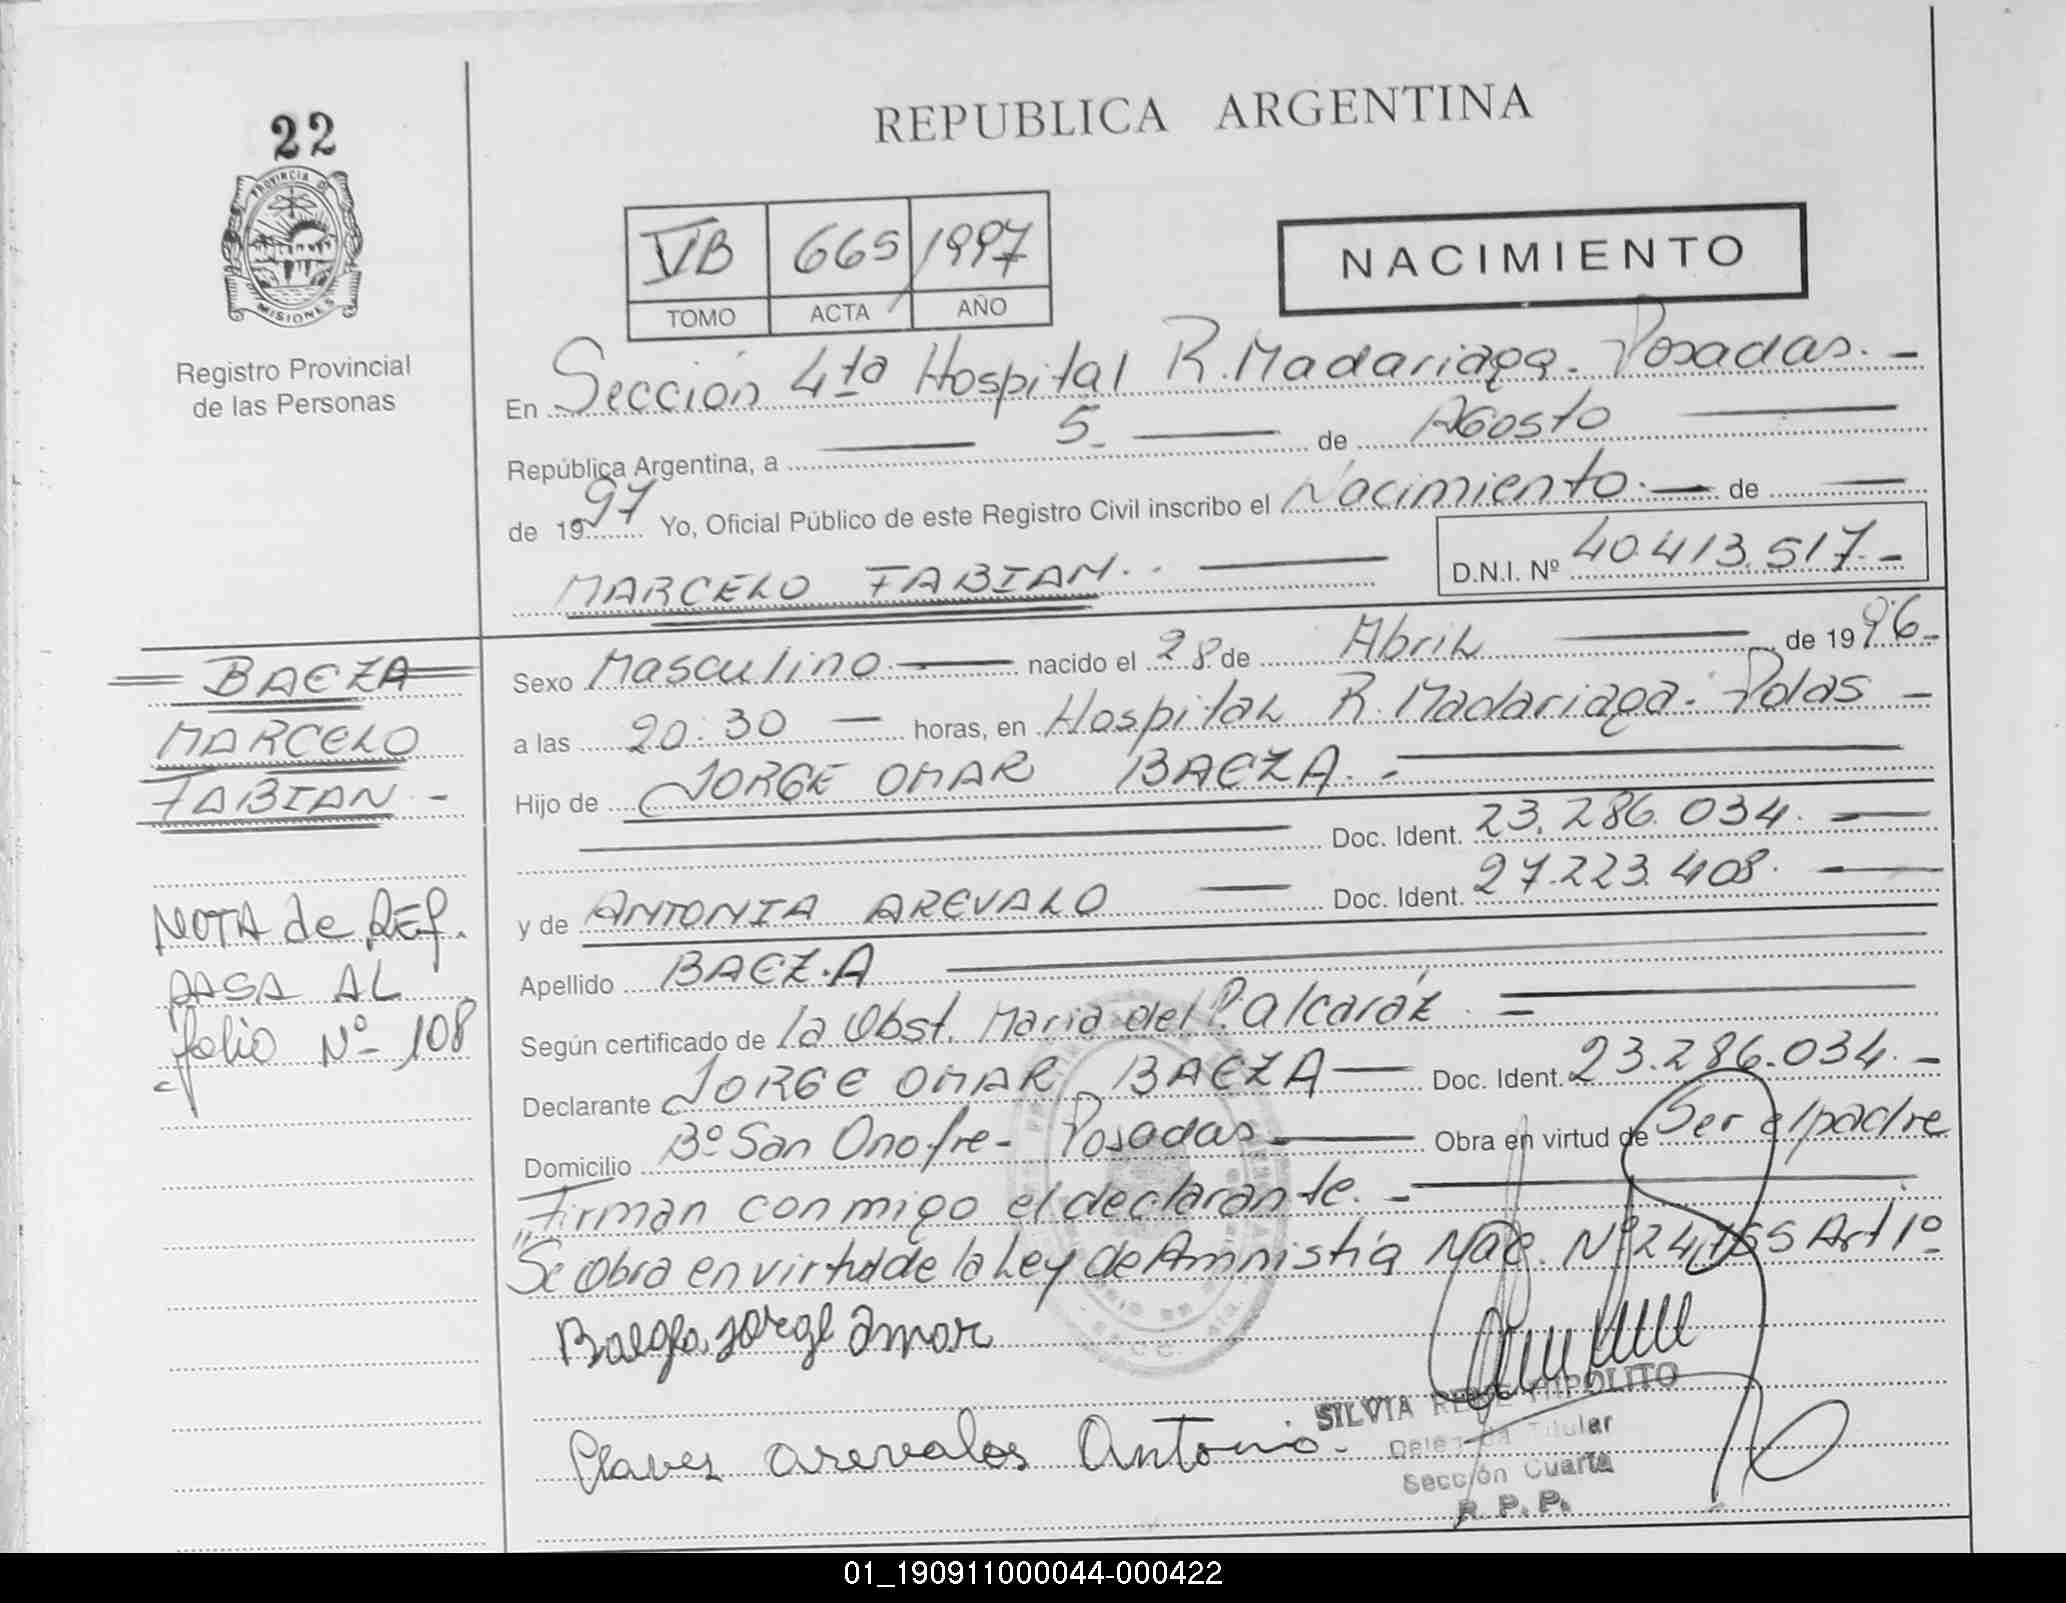 22
PROVINCIA D
MISIONES
Registro Provincial
de las Personas
REPUBLICA ARGENTINA
VB 665 1997
TOMO ACTA AÑO
NACIMIENTO
En Sección 4ta Hospital R. Madariaga. Posadas. -
República Argentina, a 5 - de Agosto
de 1997 Yo, Oficial Público de este Registro Civil inscribo el Nacimiento. - de -
MARCELO FABIAN. . D.N.I. Nº 40.413.517.-
Sexo Masculino nacido el 28 de Abril de 1996.-
a las 20:30 - horas, en Hospital R. Madariaga. Pdas -
Hijo de JORGE OMAR BAEZA. -
Doc. Ident. 23.286.034. -
y de ANTONIA AREVALO Doc. Ident. 27.223.408. -
Apellido BAEZ.A
Según certificado de la Obst. Maria del P. alcaráz
Declarante JORGE OMAR BAEZA - Doc. Ident. 23.286.034. -
Domicilio Bº San Onofre - Posadas. Obra en virtud de Ser el padre
Firman conmigo el declarante. -
"Se Obra en virtud de la Ley de Amnistía Nac. Nº 24.755 Art 1º
Jorge Omar
arevalos Antonio.
SILVIA HIPOLITO
Titular
Sección Cuarta
R.P.P.
BAEZA
MARCELO
FABIAN. -
NOTA de REF.
PASA AL
folio Nº - 108
01_190911000044-000422